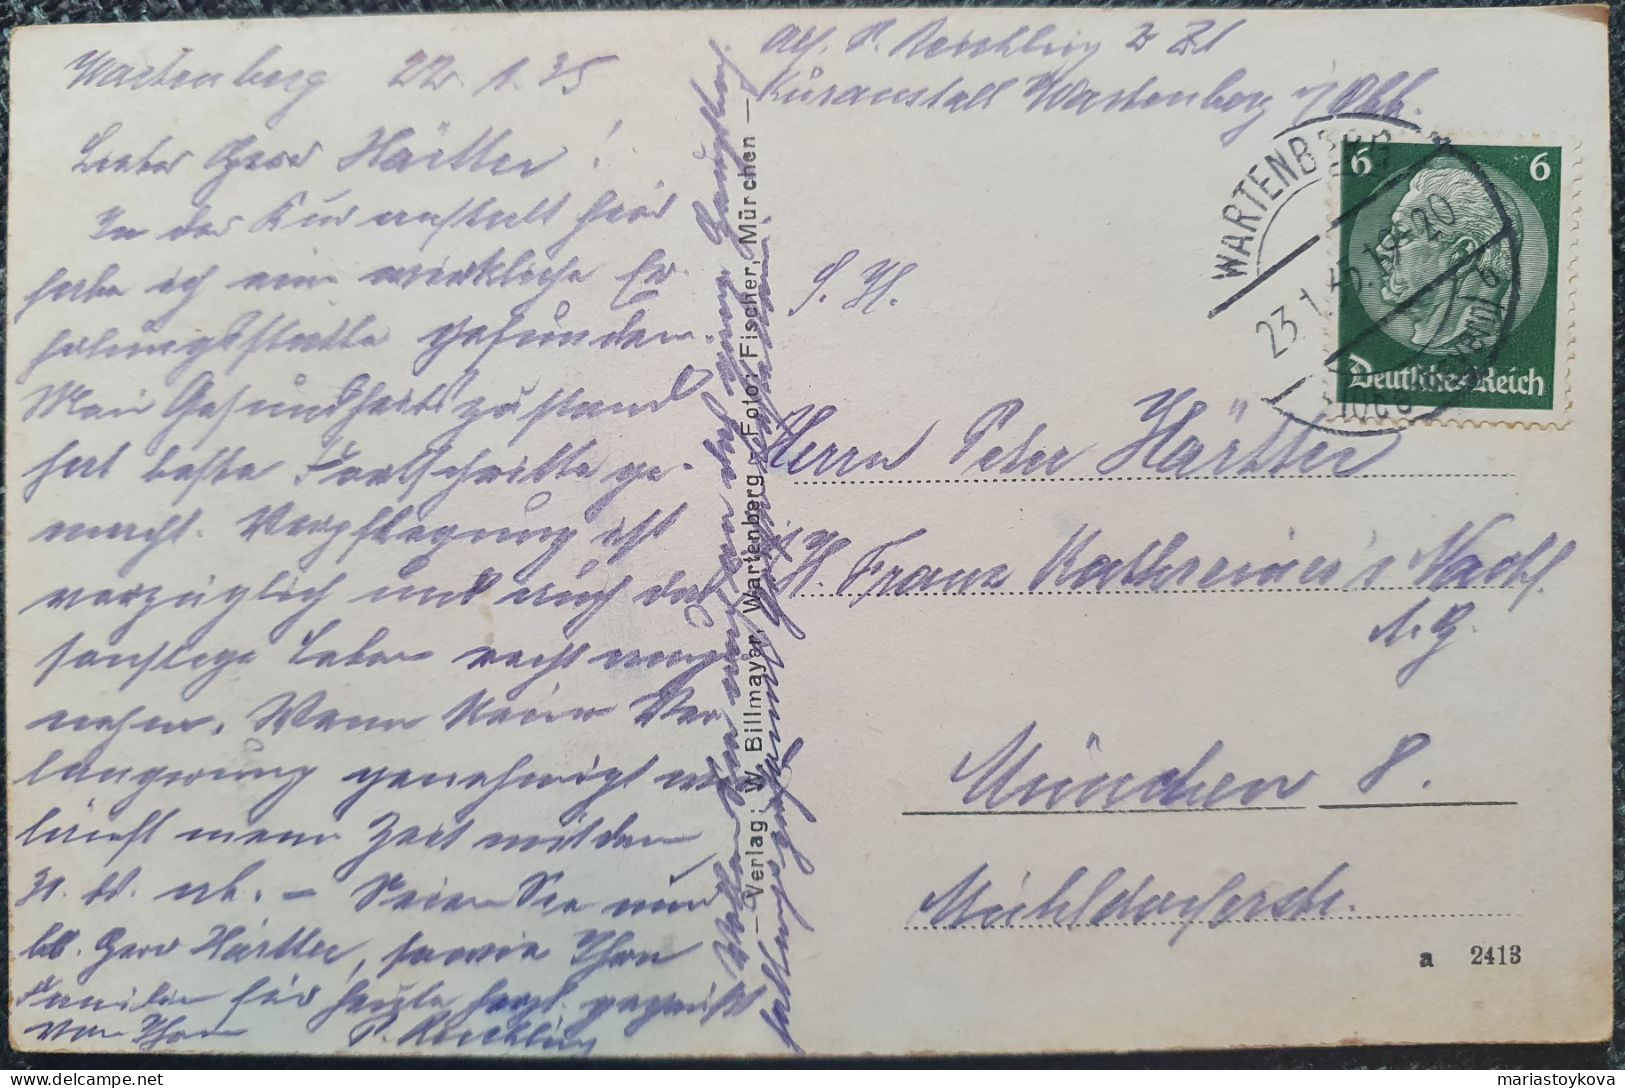 Wartenberg 22. 1. 35
Lieber Herr Härtter!
In der Kuranstalt hier
habe ich eine wirkliche Er-
holungsstätte gefunden.
Mein Gesundheitszustand
hat beste Fortschritte ge-
macht. Verpflegung ist
vorzüglich und auch das
sonstige Leben recht ange-
nehm. Wenn keine Ver
längerung genehmigt wird
läuft meine Zeit mit dem
ab. – Seien Sie nun
lb. Herr Härtter, sowie Ihre
Familie für heute herzl. gegrüßt
von Ihrem P. Reichling
Verlag: W. Billmayer, Wartenberg - Foto: Fischer, München
Abs. P. Reichling z Zt
Kuranstalt Wartenberg /Obb.
WARTENBERG
23.1.35.19-20
6 6
Deutsches Reich
S. H.
Herrn Peter Härtter
Franz Kathreiner's Nachf.
A.G.
München 8.
Mühldorferstr.
a 2413
mariastoykova